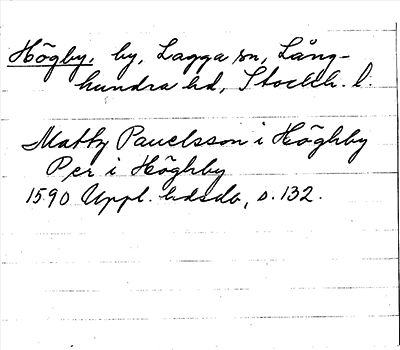 Högby, by, Lagga sn, Lång-
hundra hd, Stockh. l.
Matts Pauelsson i Höghby
Per i Höghby
1590 Uppl. hdsdb, s. 132.